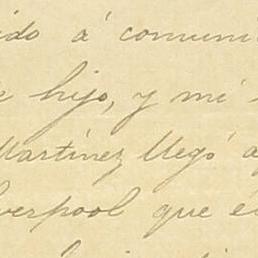 ido á comuni
e hijo, y mi
Martínez llegó a
iverpool que é